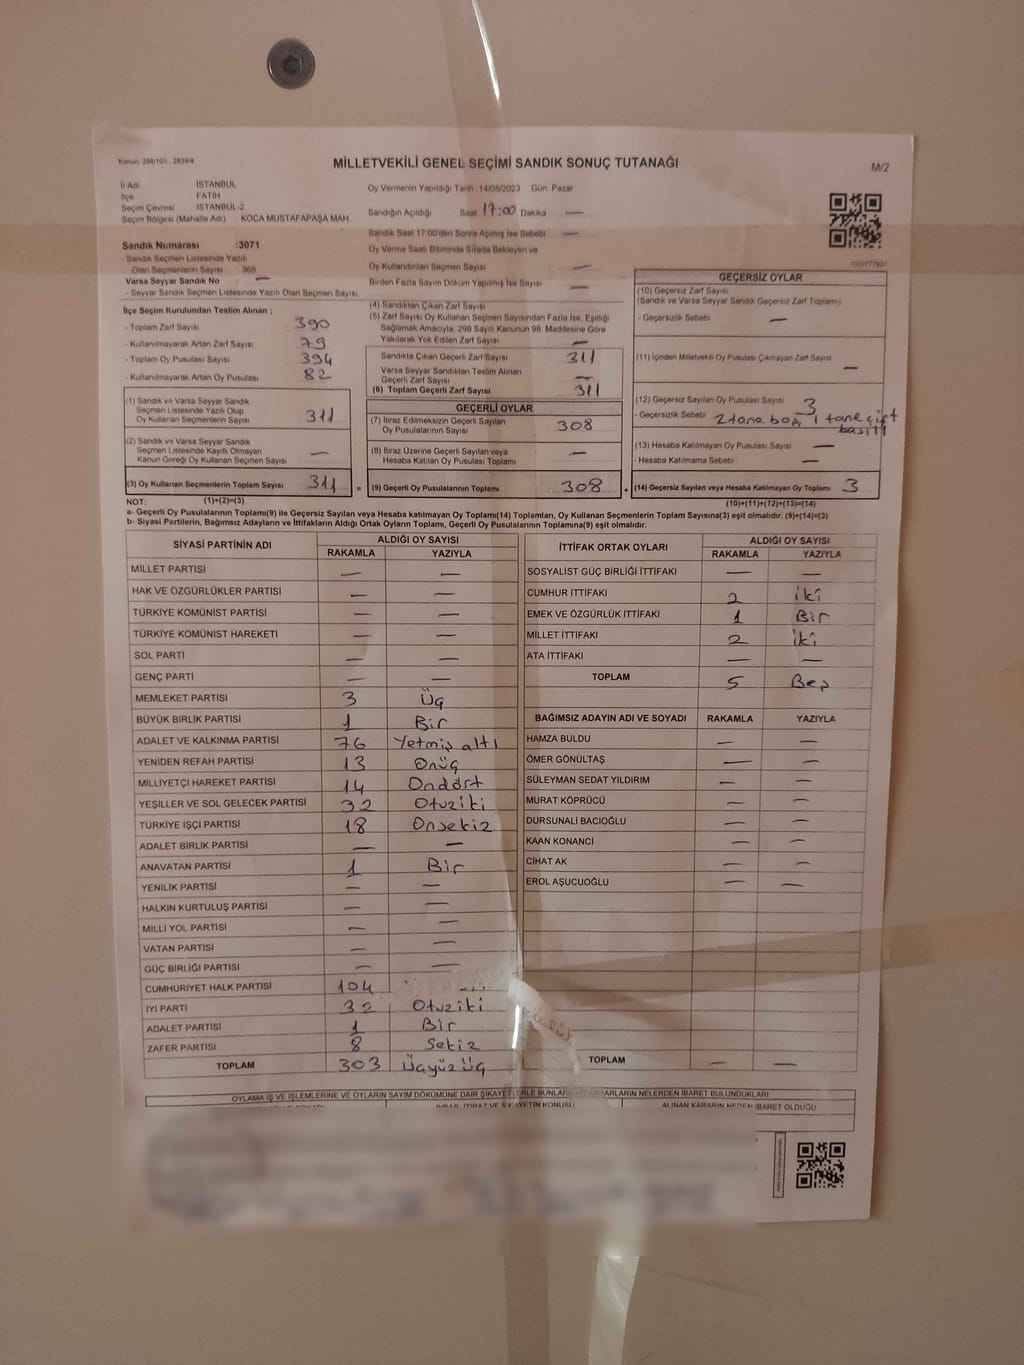 Kanun: 298/100 , 2839/4
MİLLETVEKİLİ GENEL SEÇİMİ SANDIK SONUÇ TUTANAĞI
M/2
İl Adı İSTANBUL
İlçe FATİH
Seçim Çevresi İSTANBUL-2
Seçim Bölgesi (Mahalle Adı) KOCA MUSTAFAPAŞA MAH
Oy Vermenin Yapıldığı Tarih 14/05/2023 Gün Pazar
Sandığın Açıldığı Saat 17:00 Dakika —
Sandık Saat 17:00'den Sonra Açılmış İse Sebebi —
Oy Verme Saati Bitiminde Sırada Bekleyen ve
Oy Kullandırılan Seçmen Sayısı —
Birden Fazla Sayım Döküm Yapılmış İse Sayısı —
Sandık Numarası :3071
- Sandık Seçmen Listesinde Yazılı
Olan Seçmenlerin Sayısı 365
Varsa Seyyar Sandık No —
- Seyyar Sandık Seçmen Listesinde Yazılı Olan Seçmen Sayısı
İlçe Seçim Kurulundan Teslim Alınan ;
- Toplam Zarf Sayısı 390
- Kullanılmayarak Artan Zarf Sayısı 79
- Toplam Oy Pusulası Sayısı 394
- Kullanılmayarak Artan Oy Pusulası 82
(1) Sandık ve Varsa Seyyar Sandık
Seçmen Listesinde Yazılı Olup
Oy Kullanan Seçmenlerin Sayısı 311
(2) Sandık ve Varsa Seyyar Sandık
Seçmen Listesinde Kayıtlı Olmayan
Kanun Gereği Oy Kullanan Seçmen Sayısı —
(3) Oy Kullanan Seçmenlerin Toplam Sayısı 311 =
(4) Sandıktan Çıkan Zarf Sayısı
(5) Zarf Sayısı Oy Kullanan Seçmen Sayısından Fazla İse, Eşitliği
Sağlamak Amacıyla, 298 Sayılı Kanunun 98. Maddesine Göre
Yakılarak Yok Edilen Zarf Sayısı —
Sandıkta Çıkan Geçerli Zarf Sayısı 311
Varsa Seyyar Sandıktan Teslim Alınan
Geçerli Zarf Sayısı —
(6) Toplam Geçerli Zarf Sayısı 311
GEÇERLİ OYLAR
(7) İtiraz Edilmeksizin Geçerli Sayılan
Oy Pusulalarının Sayısı 308
(8) İtiraz Üzerine Geçerli Sayılan veya
Hesaba Katılan Oy Pusulası Toplamı —
(9) Geçerli Oy Pusulalarının Toplamı 308 +
GEÇERSİZ OYLAR
(10) Geçersiz Zarf Sayısı
(Sandık ve Varsa Seyyar Sandık Geçersiz Zarf Toplamı)
- Geçersizlik Sebebi —
(11) İçinden Milletvekili Oy Pusulası Çıkmayan Zarf Sayısı —
(12) Geçersiz Sayılan Oy Pusulası Sayısı 3
- Geçersizlik Sebebi 2 tane boş, 1 tane çift
basılı
(13) Hesaba Katılmayan Oy Pusulası Sayısı —
- Hesaba Katılmama Sebebi —
(14) Geçersiz Sayılan veya Hesaba Katılmayan Oy Toplamı 3
NOT: (1)+(2)=(3) (10)+(11)+(12)+(13)=(14)
a- Geçerli Oy Pusulalarının Toplamı(9) ile Geçersiz Sayılan veya Hesaba katılmayan Oy Toplamı(14) Toplamları, Oy Kullanan Seçmenlerin Toplam Sayısına(3) eşit olmalıdır. (9)+(14)=(3)
b- Siyasi Partilerin, Bağımsız Adayların ve İttifakların Aldığı Ortak Oyların Toplamı, Geçerli Oy Pusulalarının Toplamına(9) eşit olmalıdır.
SİYASİ PARTİNİN ADI ALDIĞI OY SAYISI
RAKAMLA YAZIYLA
MİLLET PARTİSİ — —
HAK VE ÖZGÜRLÜKLER PARTİSİ — —
TÜRKİYE KOMÜNİST PARTİSİ — —
TÜRKİYE KOMÜNİST HAREKETİ — —
SOL PARTİ — —
GENÇ PARTİ — —
MEMLEKET PARTİSİ 3 Üç
BÜYÜK BİRLİK PARTİSİ 1 Bir
ADALET VE KALKINMA PARTİSİ 76 Yetmiş altı
YENİDEN REFAH PARTİSİ 13 Onüç
MİLLİYETÇİ HAREKET PARTİSİ 14 Ondört
YEŞİLLER VE SOL GELECEK PARTİSİ 32 Otuziki
TÜRKİYE İŞÇİ PARTİSİ 18 Onsekiz
ADALET BİRLİK PARTİSİ — —
ANAVATAN PARTİSİ 1 Bir
YENİLİK PARTİSİ — —
HALKIN KURTULUŞ PARTİSİ — —
MİLLİ YOL PARTİSİ — —
VATAN PARTİSİ — —
GÜÇ BİRLİĞİ PARTİSİ — —
CUMHURİYET HALK PARTİSİ 104
İYİ PARTİ 32 Otuziki
ADALET PARTİSİ 1 Bir
ZAFER PARTİSİ 8 Sekiz
TOPLAM 303 Üçyüzüç
İTTİFAK ORTAK OYLARI ALDIĞI OY SAYISI
RAKAMLA YAZIYLA
SOSYALİST GÜÇ BİRLİĞİ İTTİFAKI — —
CUMHUR İTTİFAKI 2 İki
EMEK VE ÖZGÜRLÜK İTTİFAKI 1 Bir
MİLLET İTTİFAKI 2 İki
ATA İTTİFAKI — —
TOPLAM 5 Beş
BAĞIMSIZ ADAYIN ADI VE SOYADI RAKAMLA YAZIYLA
HAMZA BULDU — —
ÖMER GÖNÜLTAŞ — —
SÜLEYMAN SEDAT YILDIRIM — —
MURAT KÖPRÜCÜ — —
DURSUNALİ BACIOĞLU — —
KAAN KONANCİ — —
CİHAT AK — —
EROL AŞUCUOĞLU — —
TOPLAM — —
OYLAMA İŞ VE İŞLEMLERİNE VE OYLARIN SAYIM DÖKÜMÜNE DAİR ŞİKAYET KARARLARIN NELERDEN İBARET BULUNDUKLARI
ALINAN KARARIN NEDEN İBARET OLDUĞU